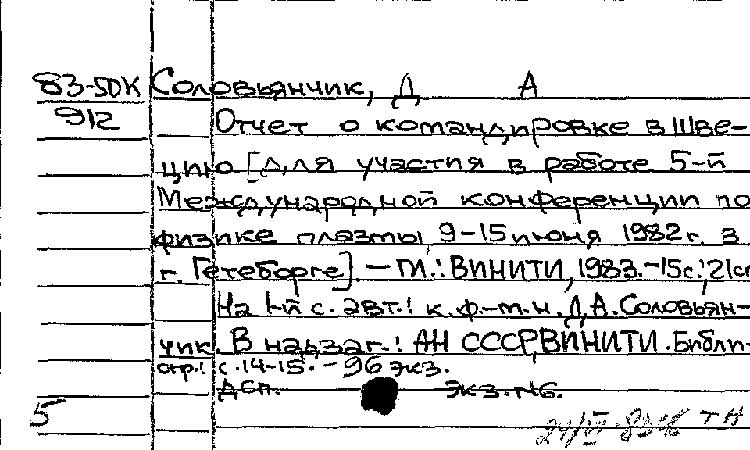 83-5ДК Соловьянчик, Д А
912 Отчет о командировке в Шве-
цию [для участия в работе 5-й
Международной конференции по
физике плазмы, 9-15 июня 1982г. в
г. Гетеборге] - М.: ВИНИТИ, 1983.-15с.; 21с
На 1-й с. авт.: к.ф.-м.н. Д.А.Соловьян-
чик. В надзаг.: АН СССР, ВИНИТИ. Библи-
огр.: с.14-15. - 96 экз.
ДСП. экз. №6.
5